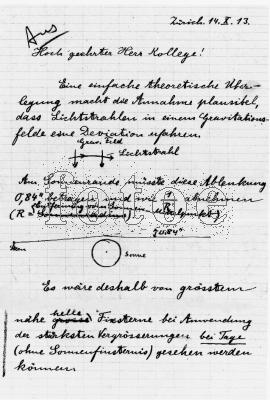 Aus
Zürich. 14. X. 13.
Hoch geehrter Herr Kollege!
Eine einfache theoretische Über-
legung macht die Annahme plausibel,
dass Lichtstrahlen in einem Gravitations-
felde eine Deviation erfahren.
Grav. Feld
Lichtstrahl
Am Sonnenrande müsste diese Ablenkung
0,84" betragen und wie 1/R abnehmen
(R =
0,84"
Stern
Sonne
Es wäre deshalb von grösstem
helle
nahe grosse Fixsterne bei Anwendung
der stärksten Vergrösserungen bei Tage
(ohne Sonnenfinsternis) gesehen werden
können